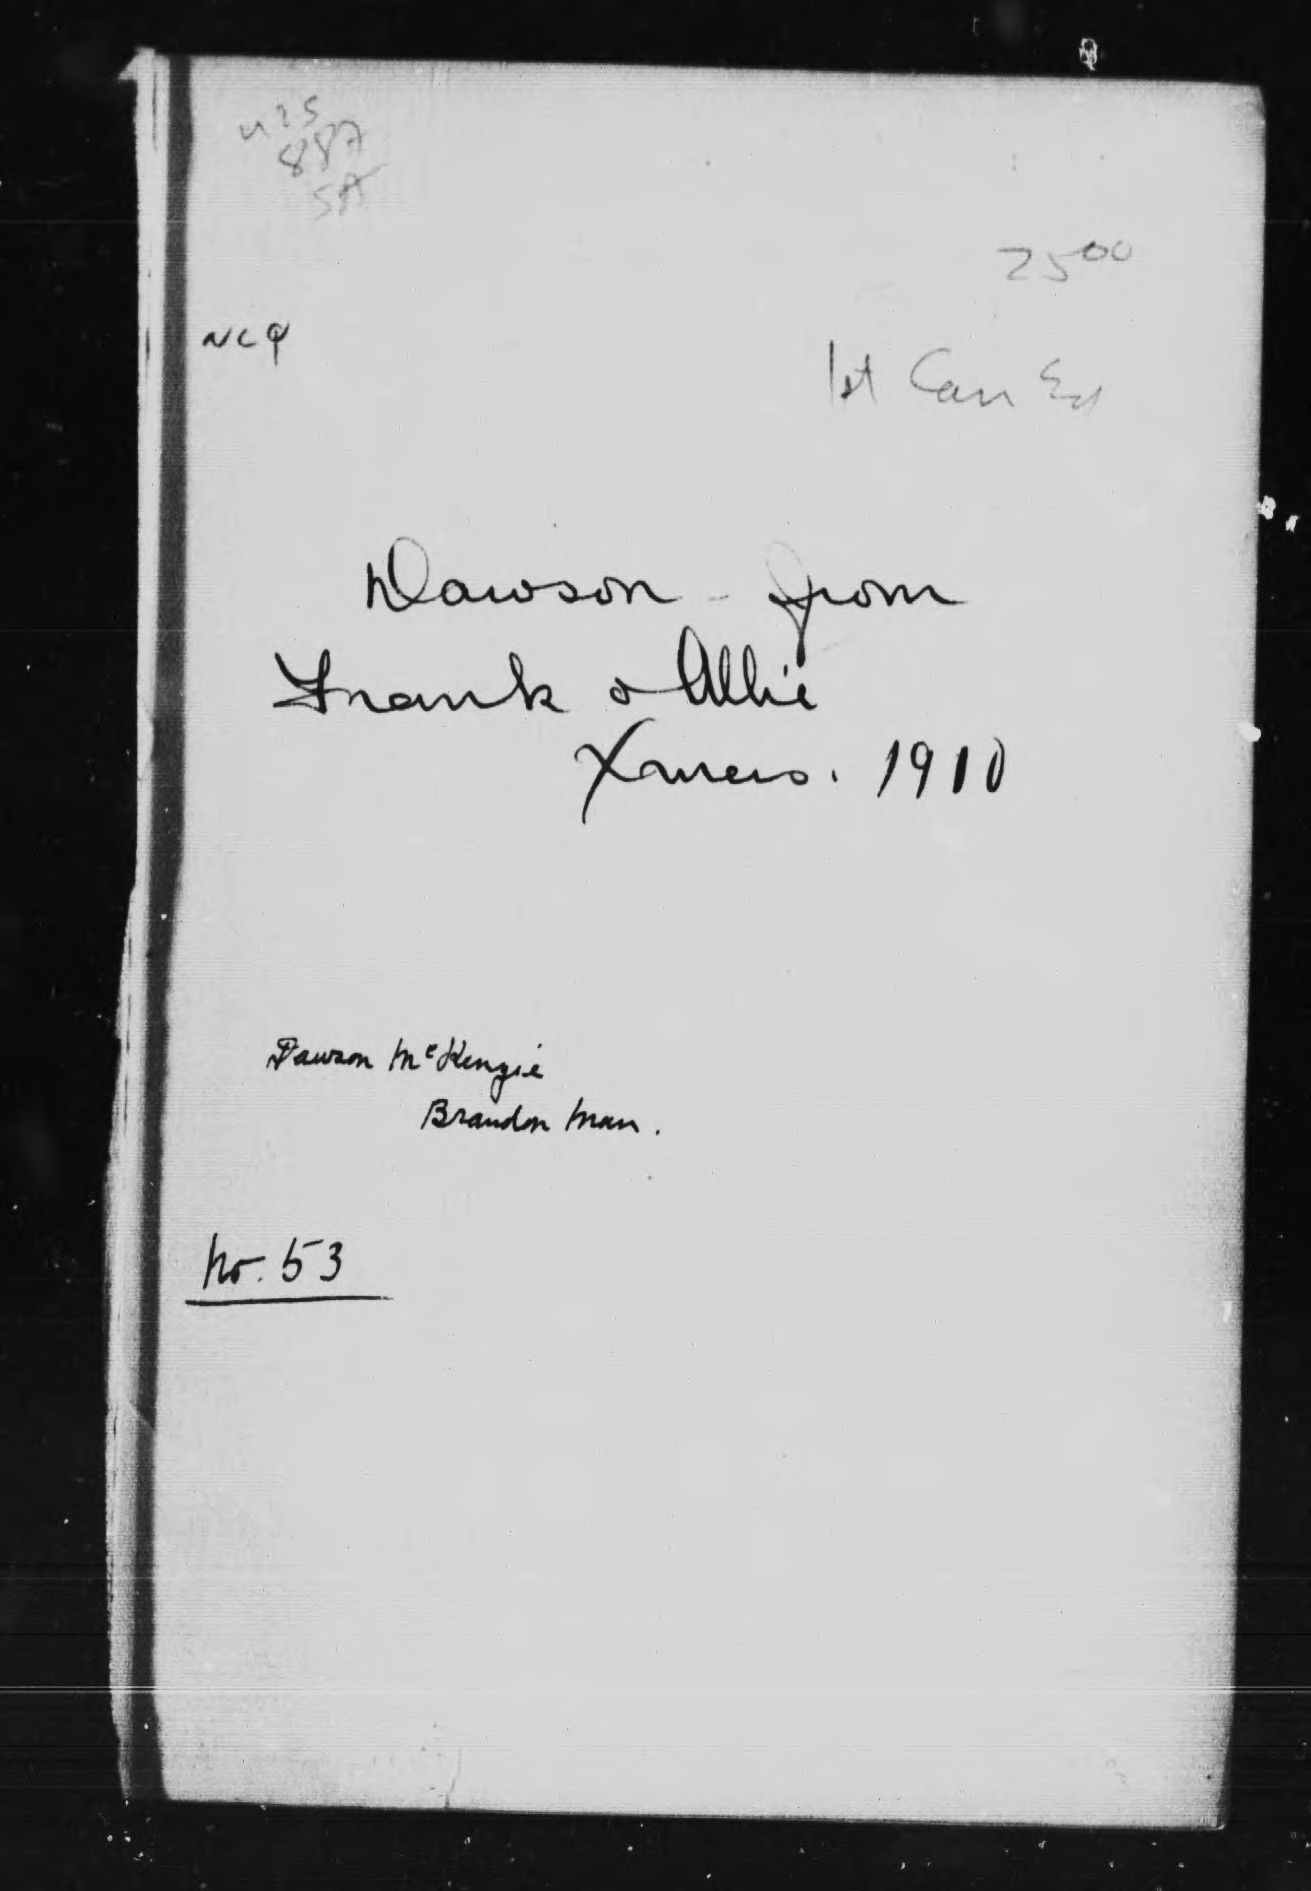 887
25 00
NCP
1st Can Ed
Dawson - from
Frank & Allie
Xmas. 1910
Dawson McKenzie
Brandon Man.
No. 53